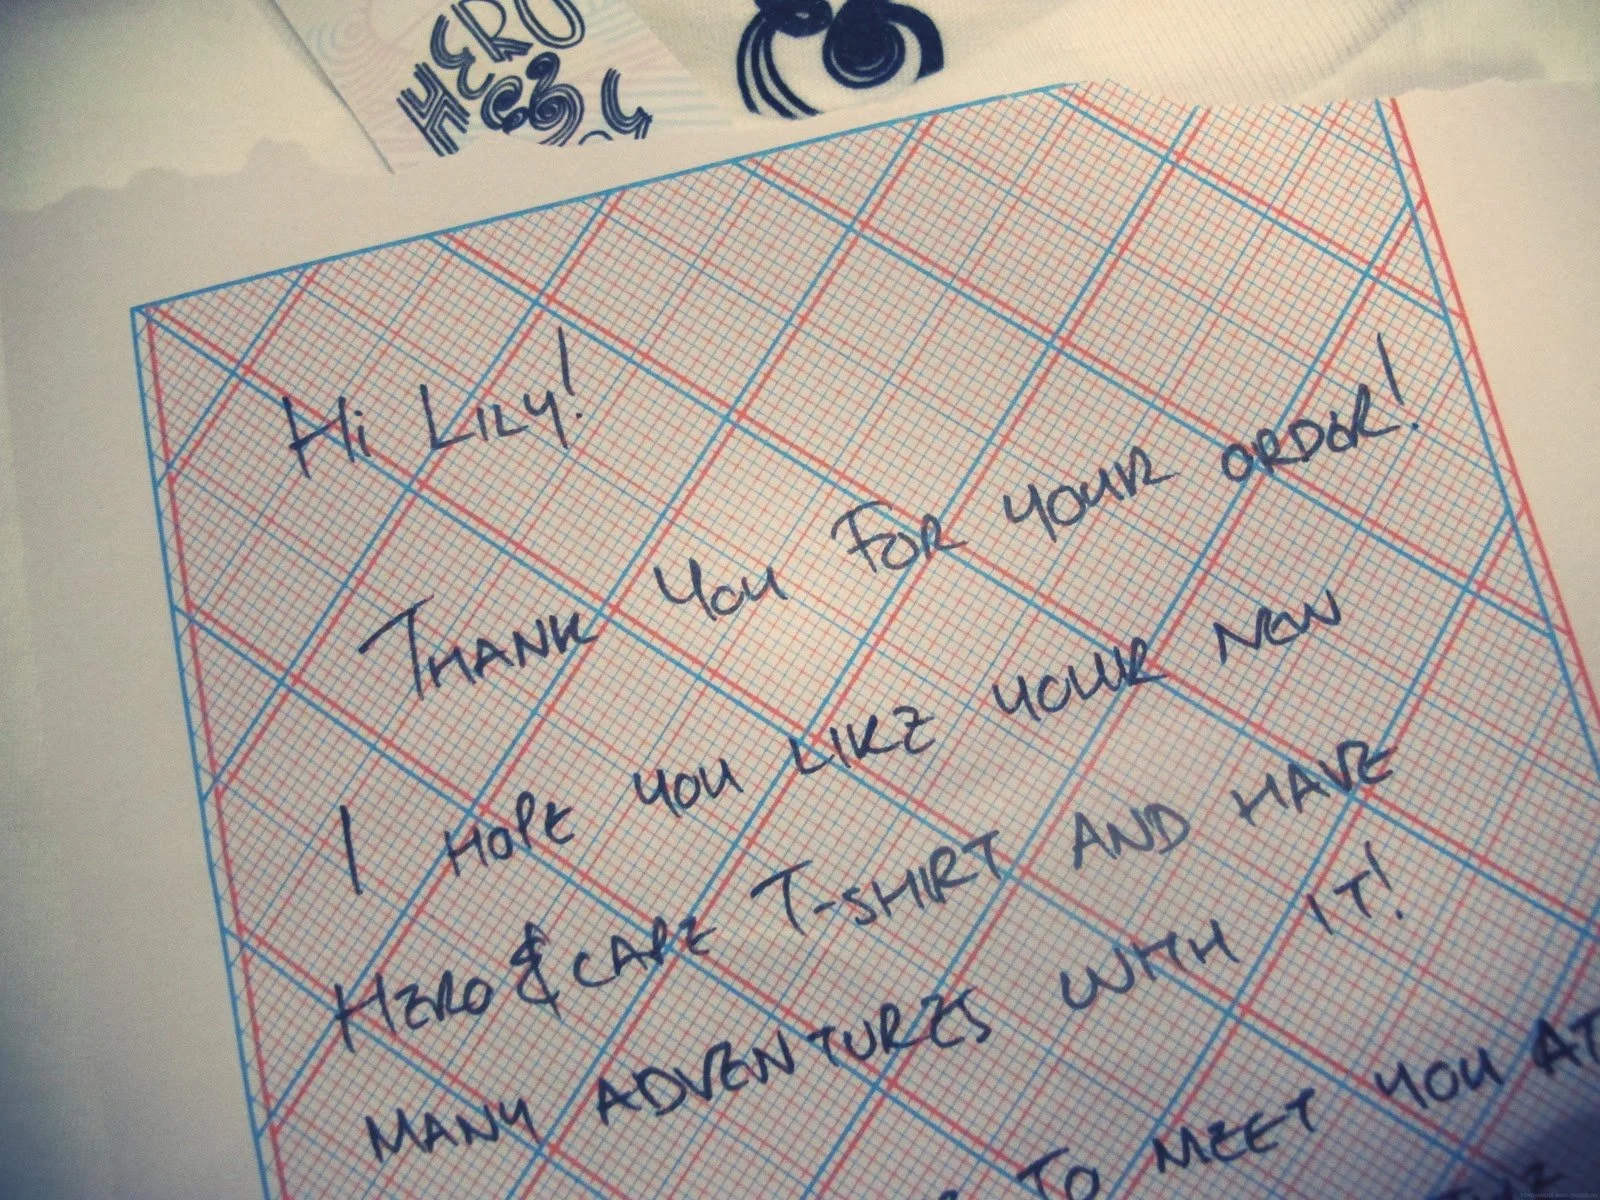 HERO
Hi LILY!
THANK YOU FOR YOUR ORDER!
I HOPE YOU LIKE YOUR NEW
HERO & CAPE T-SHIRT AND HAVE
MANY ADVENTURES WITH IT!
TO MEET YOU AT